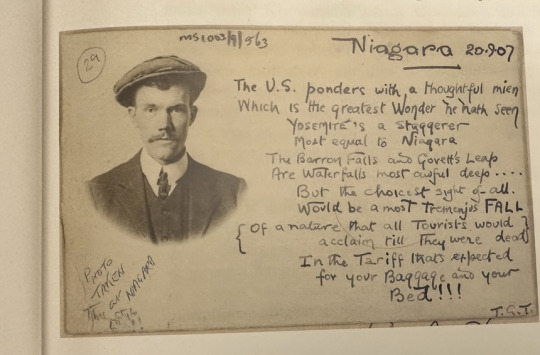 29
ms1003/9/563
Niagara 20.9.07
The U.S. ponders with a thoughtful mien
Which is the greatest Wonder he hath seen
Yosemite's a staggerer
Most equal to Niagara
The Barron Falls and Govett's Leap
Are Waterfalls most awful deep....
But the choicest sight of all.
Would be a most Tremenjus FALL
{ Of a nature that all Tourists would }
{ acclaim till they were dead }
In the Tariff that's expected
for your Baggage and your
Bed!!!
J.G.T.
PHOTO
TAKEN
at NIAGARA